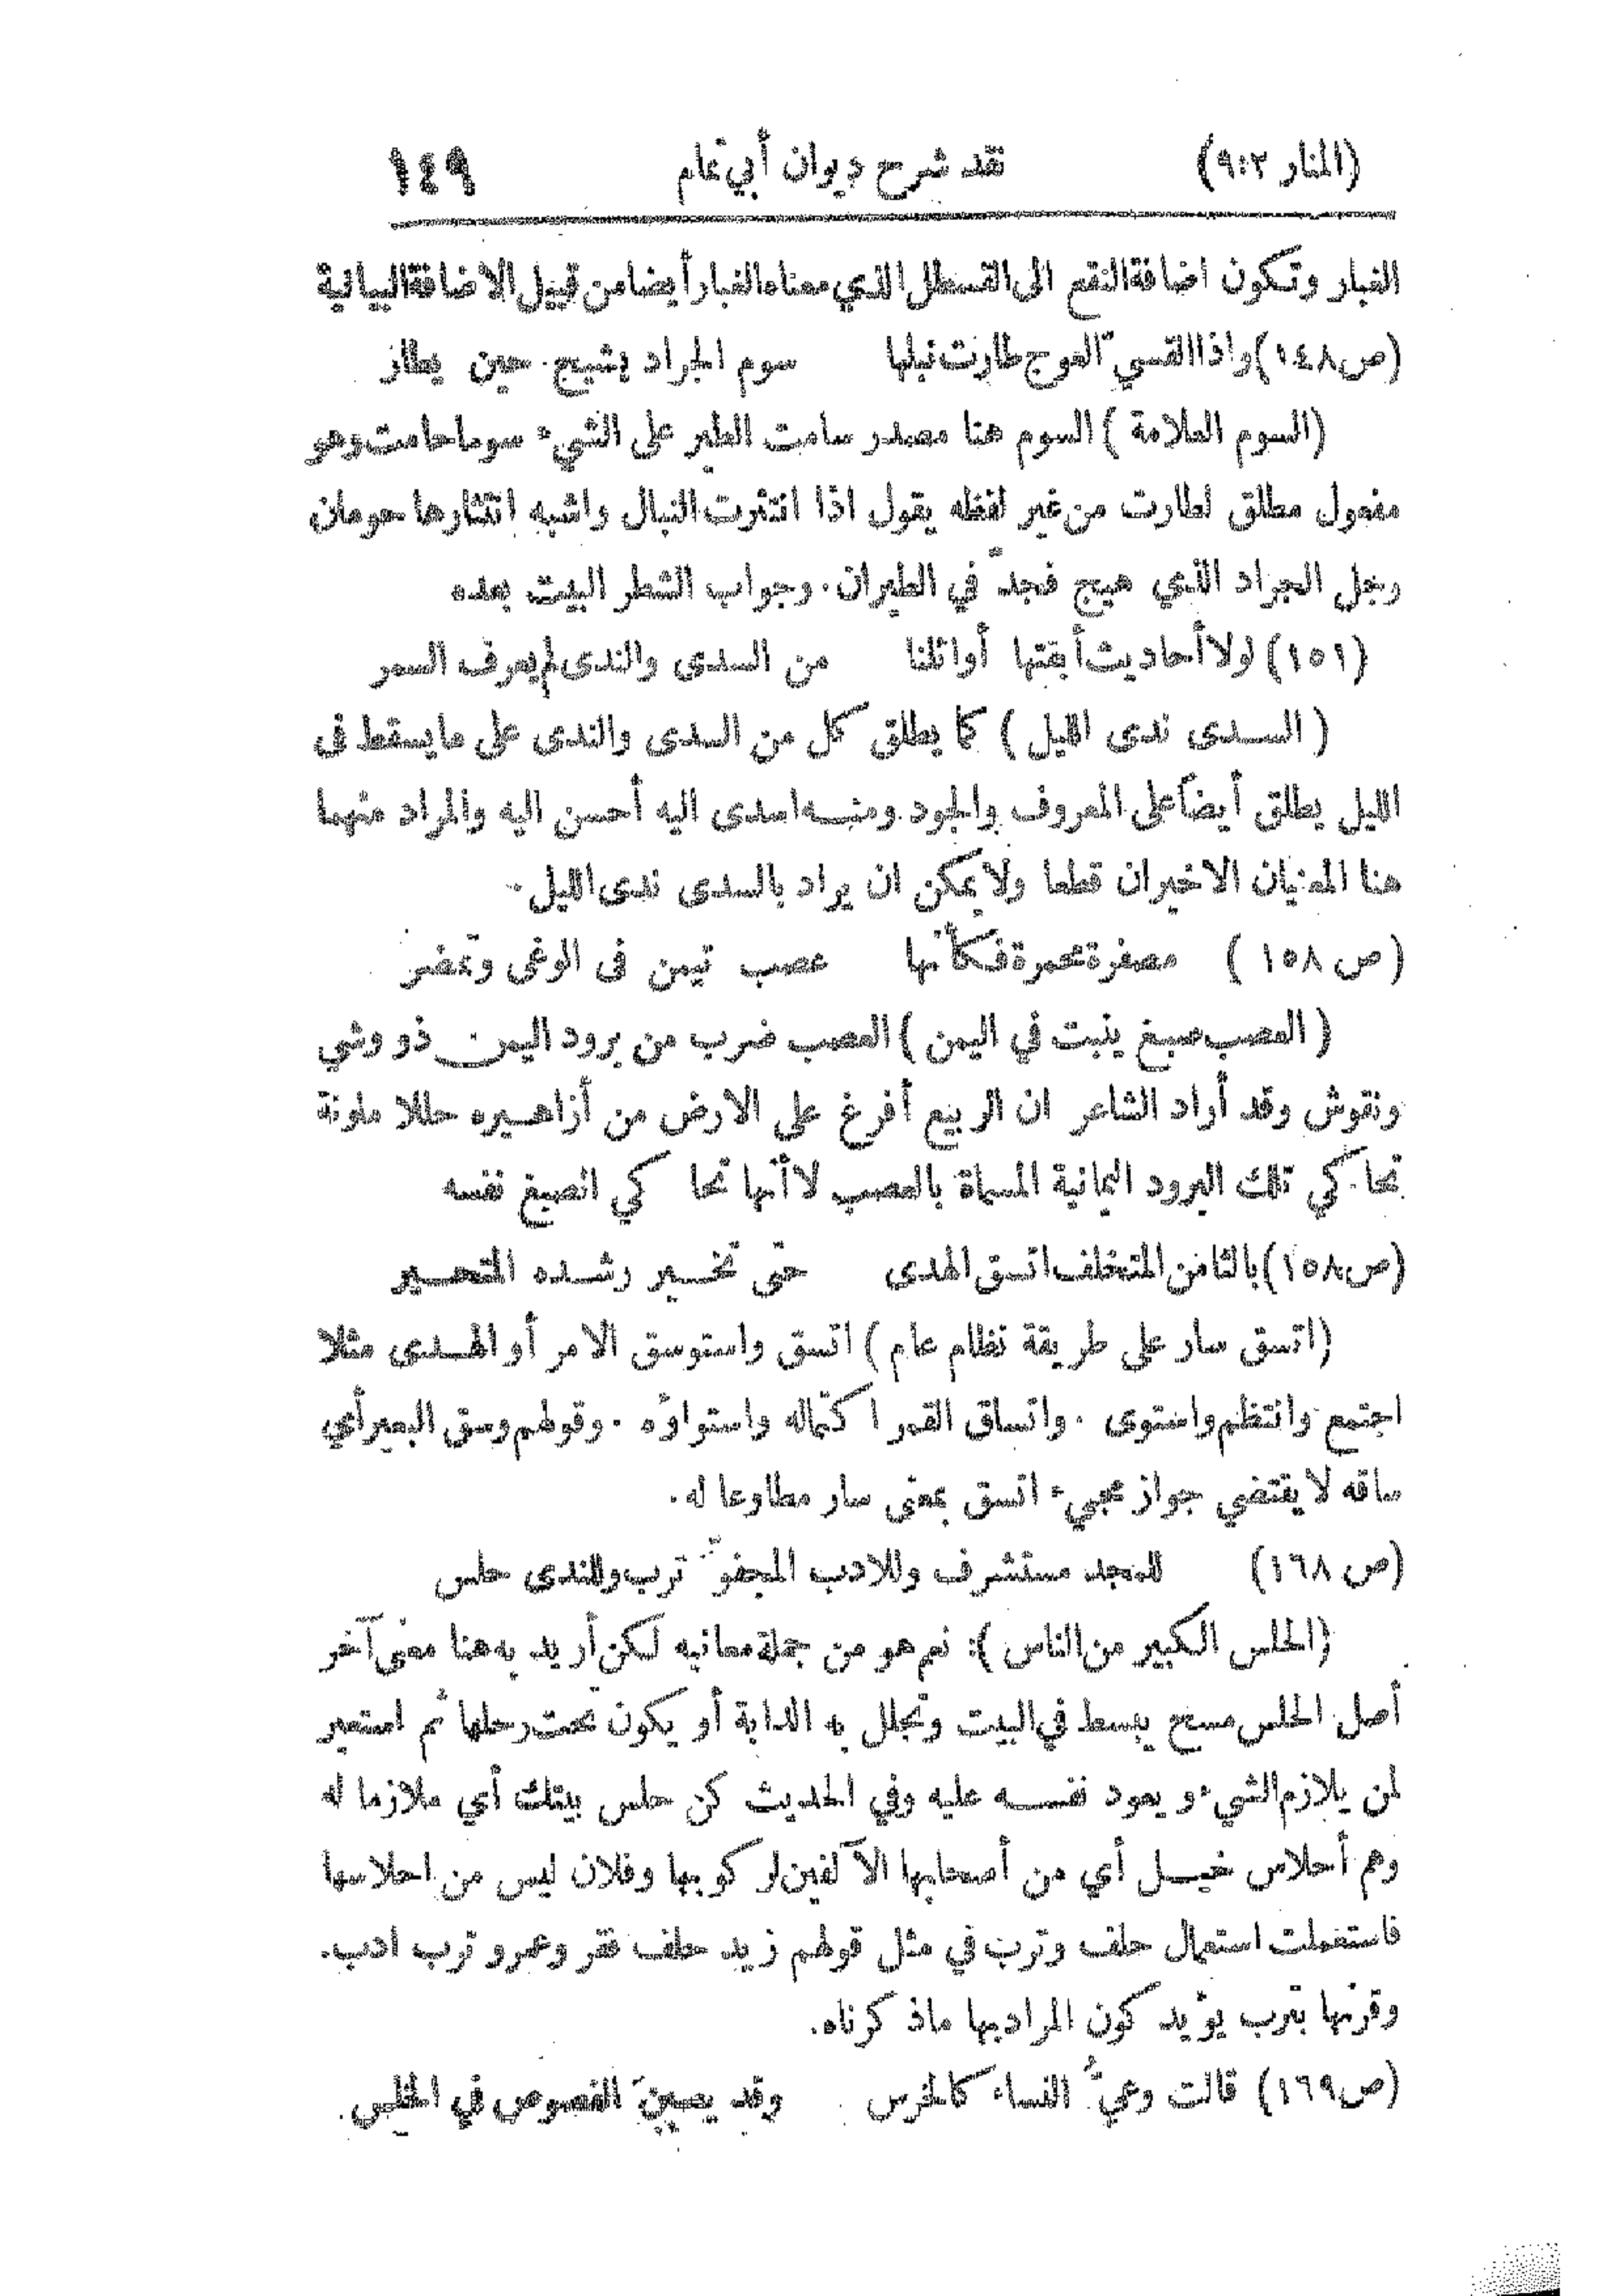 (المنار ٩:٢) نقد شرح ديوان أبي تمام ١٤٩
الغبار وتكون اضافة النقع الى القسطل الذي معناه الغبار أيضا من قبيل الاضافة البيانية
(ص١٤٨) واذا القسيّ العوج طارت نبلها سوم الجراد يشيح حين يطار
(السوم العلامة) السوم هنا مصدر سامت الطير على الشيء سوما حامت وهو
مفعول مطلق لطارت من غير لفظه يقول اذا انتثرت النبال واشبه انتثارها حومان
رجل الجراد الذي هيج فجدّ في الطيران. وجواب الشطر البيت بعده
(١٥١) لولا أحاديث أبقتها أوائلنا من السدى والندى لم يعرف السمر
(السدى ندى الليل) كما يطلق كل من السدى والندى على ما يسقط فى
الليل يطلق أيضاً على المعروف والجود ومنه اسدى اليه أحسن اليه والمراد منهما
هنا المعنيان الاخيران قطعا ولا يمكن ان يراد بالسدى ندى الليل.
(ص ١٥٨) مصفرة محمرة فكأنها عصب تيمن فى الوغى وتمضر
(العصب صبغ ينبت في اليمن) العصب ضرب من برود اليمن ذو وشي
ونقوش وقد أراد الشاعر ان الربيع أفرغ على الارض من أزاهيره حللا ملونة
تحاكي تلك البرود اليمانية المسماة بالعصب لا أنها تحاكي الصبغ نفسه
(ص١٥٨) بالثامن المتخلف اتسق الهدى حتى تخير رشده المتحير
(اتسق سار على طريقة نظام عام) اتسق واستوسق الامر أو الهدى مثلا
اجتمع وانتظم واستوى. واتساق القمر اكتماله واستواؤه. وقولهم وسق البعير أي
ساقه لا يقتضي جواز مجيء اتسق بمعنى سار مطاوعا له.
(ص ١٦٨) للمجد مستشرف وللادب المجفوّ ترب وللندى حلس
(الحلس الكبير من الناس): نعم هو من جملة معانيه لكن أريد به هنا معنى آخر
أصل الحلس مسح يبسط في البيت وتجلل به الدابة أو يكون تحت رحلها ثم استعير
لمن يلازم الشيء ويعود نفسه عليه وفي الحديث كن حلس بيتك أي ملازما له
وهم أحلاس خيل أي من أصحابها الآلفين لركوبها وفلان ليس من احلاسها
فاستعملت استعمال حلف وترب في مثل قولهم زيد حلف فقر وعمرو ترب ادب.
وقرنها بترب يؤيد كون المراد بها ماذكرناه.
(ص١٦٩) قالت وعيّ النساء كالخرس وقد يصبن الفصوص في الخلس.